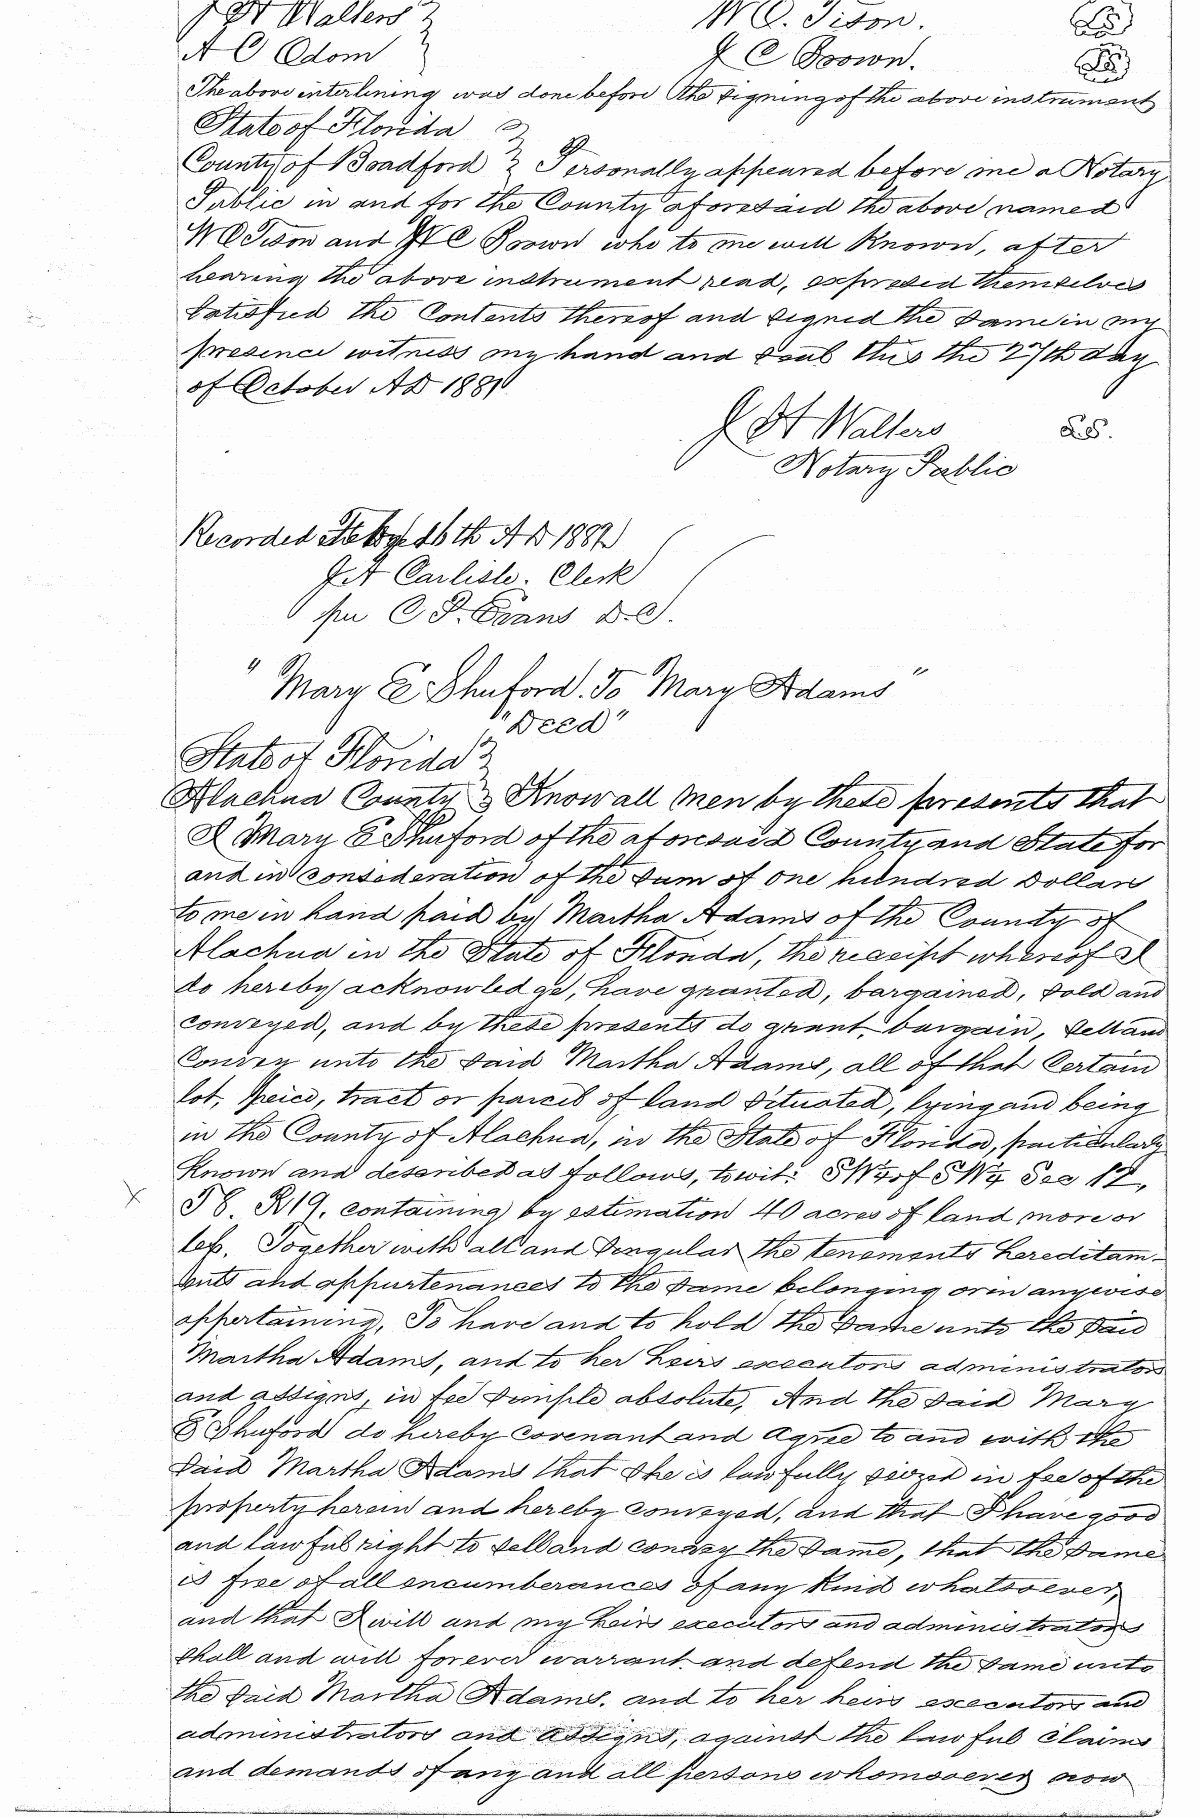 J H Walters W C. Tison. LS
A C Odom J C Brown. LS
The above interlining was done before the signing of the above instrument
State of Florida
County of Bradford Personally appeared before me a Notary
Public in and for the County aforesaid the above named
W C Tison and J C Brown who to me will Known, after
hearing the above instrument read, expresed themselves
Satisfied the Contents thereof and signed the same in my
presence witness my hand and seal this the 27th day
of October AD 1881
J H Walters L.S.
Notary Public
Recorded 16th A D 1882
J A Carlisle. Clerk
per C P. Evans D.C.
" Mary E Shuford. To Mary Adams "
"Deed"
State of Florida
Alachua County Know all men by these presents that
I Mary E Shuford of the aforesaid County and State for
and in consideration of the sum of one hundred Dollars
to me in hand paid by Martha Adams of the County of
Alachua in the State of Florida, the receipt whereof I
do hereby acknowledge, have granted, bargained, sold and
conveyed, and by these presents do grant, bargain, sell and
Convey unto the said Martha Adams, all of that Certain
lot, peice, tract or parcel of land situated, lying and being
in the County of Alachua, in the State of Florida, particularly
Known and described as follows, towit: SW4 of SW4 Sec 12,
X T8. R19. containing by estimation 40 acres of land more or
less. Together with all and singular the tenements hereditam-
ents and appurtenances to the same belonging or in anywise
appertaining, To have and to hold the same unto the said
Martha Adams, and to her heirs executors administrators
and assigns, in fee simple absolute, And the said Mary
E Shuford do hereby covenant and agree to and with the
said Martha Adams that she is lawfully seized in fee of the
property herein and hereby conveyed, and that I have good
and lawful right to sell and convey the same, that the same
is free of all encumberances of any kind whatsoever,
and that I will and my heirs executors and administrators
shall and will forever warrant and defend the same unto
the said Martha Adams. and to her heirs executors and
administrators and assigns, against the lawful claims
and demands of any and all persons whomsoever now